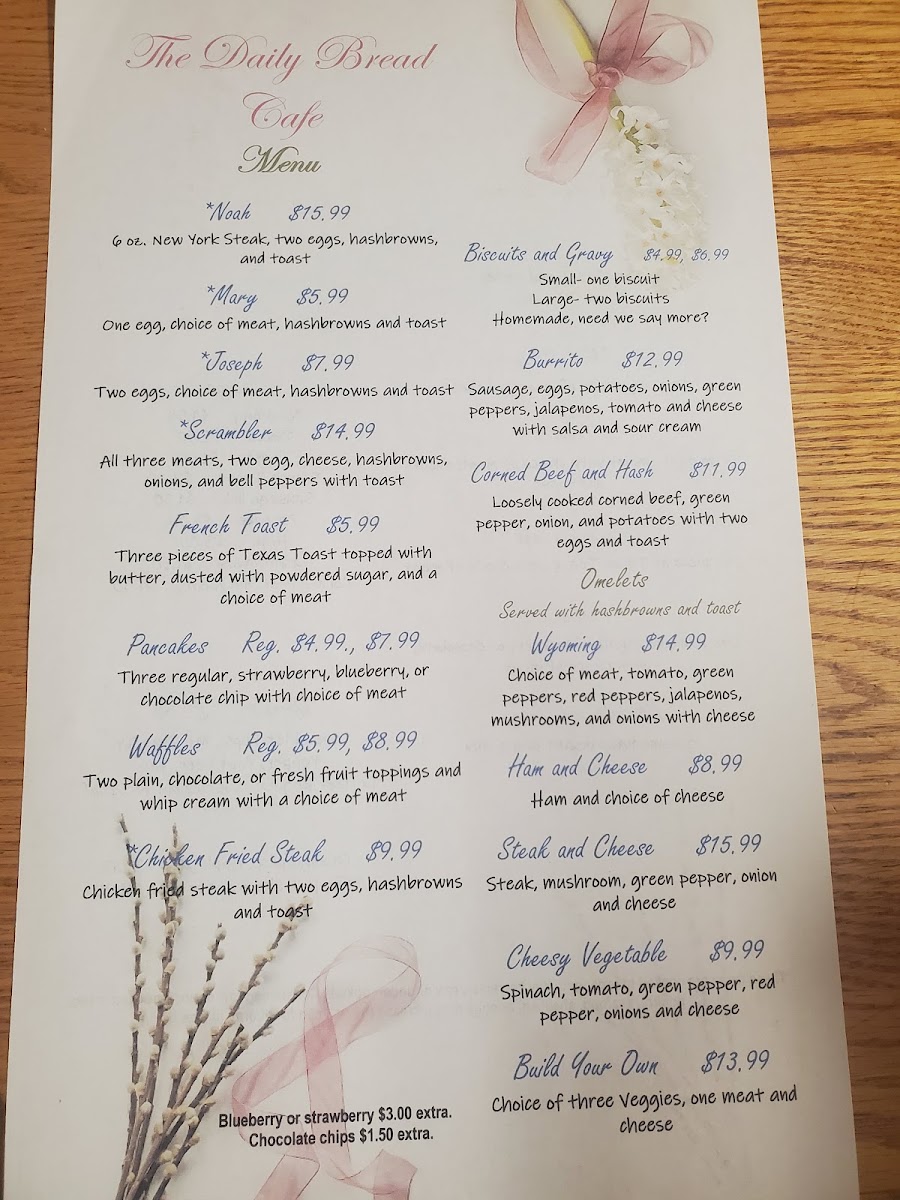 The Daily Bread
Cafe
Menu
*Noah $15.99
6 oz. New York Steak, two eggs, hashbrowns,
and toast
*Mary $5.99
One egg, choice of meat, hashbrowns and toast
*Joseph $7.99
Two eggs, choice of meat, hashbrowns and toast
*Scrambler $14.99
All three meats, two egg, cheese, hashbrowns,
onions, and bell peppers with toast
French Toast $5.99
Three pieces of Texas Toast topped with
butter, dusted with powdered sugar, and a
choice of meat
Pancakes Reg. $4.99., $7.99
Three regular, strawberry, blueberry, or
chocolate chip with choice of meat
Waffles Reg. $5.99, $8.99
Two plain, chocolate, or fresh fruit toppings and
whip cream with a choice of meat
*Chicken Fried Steak $9.99
Chicken fried steak with two eggs, hashbrowns
and toast
Blueberry or strawberry $3.00 extra.
Chocolate chips $1.50 extra.
Biscuits and Gravy $4.99, $6.99
Small- one biscuit
Large- two biscuits
Homemade, need we say more?
Burrito $12.99
Sausage, eggs, potatoes, onions, green
peppers, jalapenos, tomato and cheese
with salsa and sour cream
Corned Beef and Hash $11.99
Loosely cooked corned beef, green
pepper, onion, and potatoes with two
eggs and toast
Omelets
Served with hashbrowns and toast
Wyoming $14.99
Choice of meat, tomato, green
peppers, red peppers, jalapenos,
mushrooms, and onions with cheese
Ham and Cheese $8.99
Ham and choice of cheese
Steak and Cheese $15.99
Steak, mushroom, green pepper, onion
and cheese
Cheesy Vegetable $9.99
Spinach, tomato, green pepper, red
pepper, onions and cheese
Build Your Own $13.99
Choice of three Veggies, one meat and
cheese